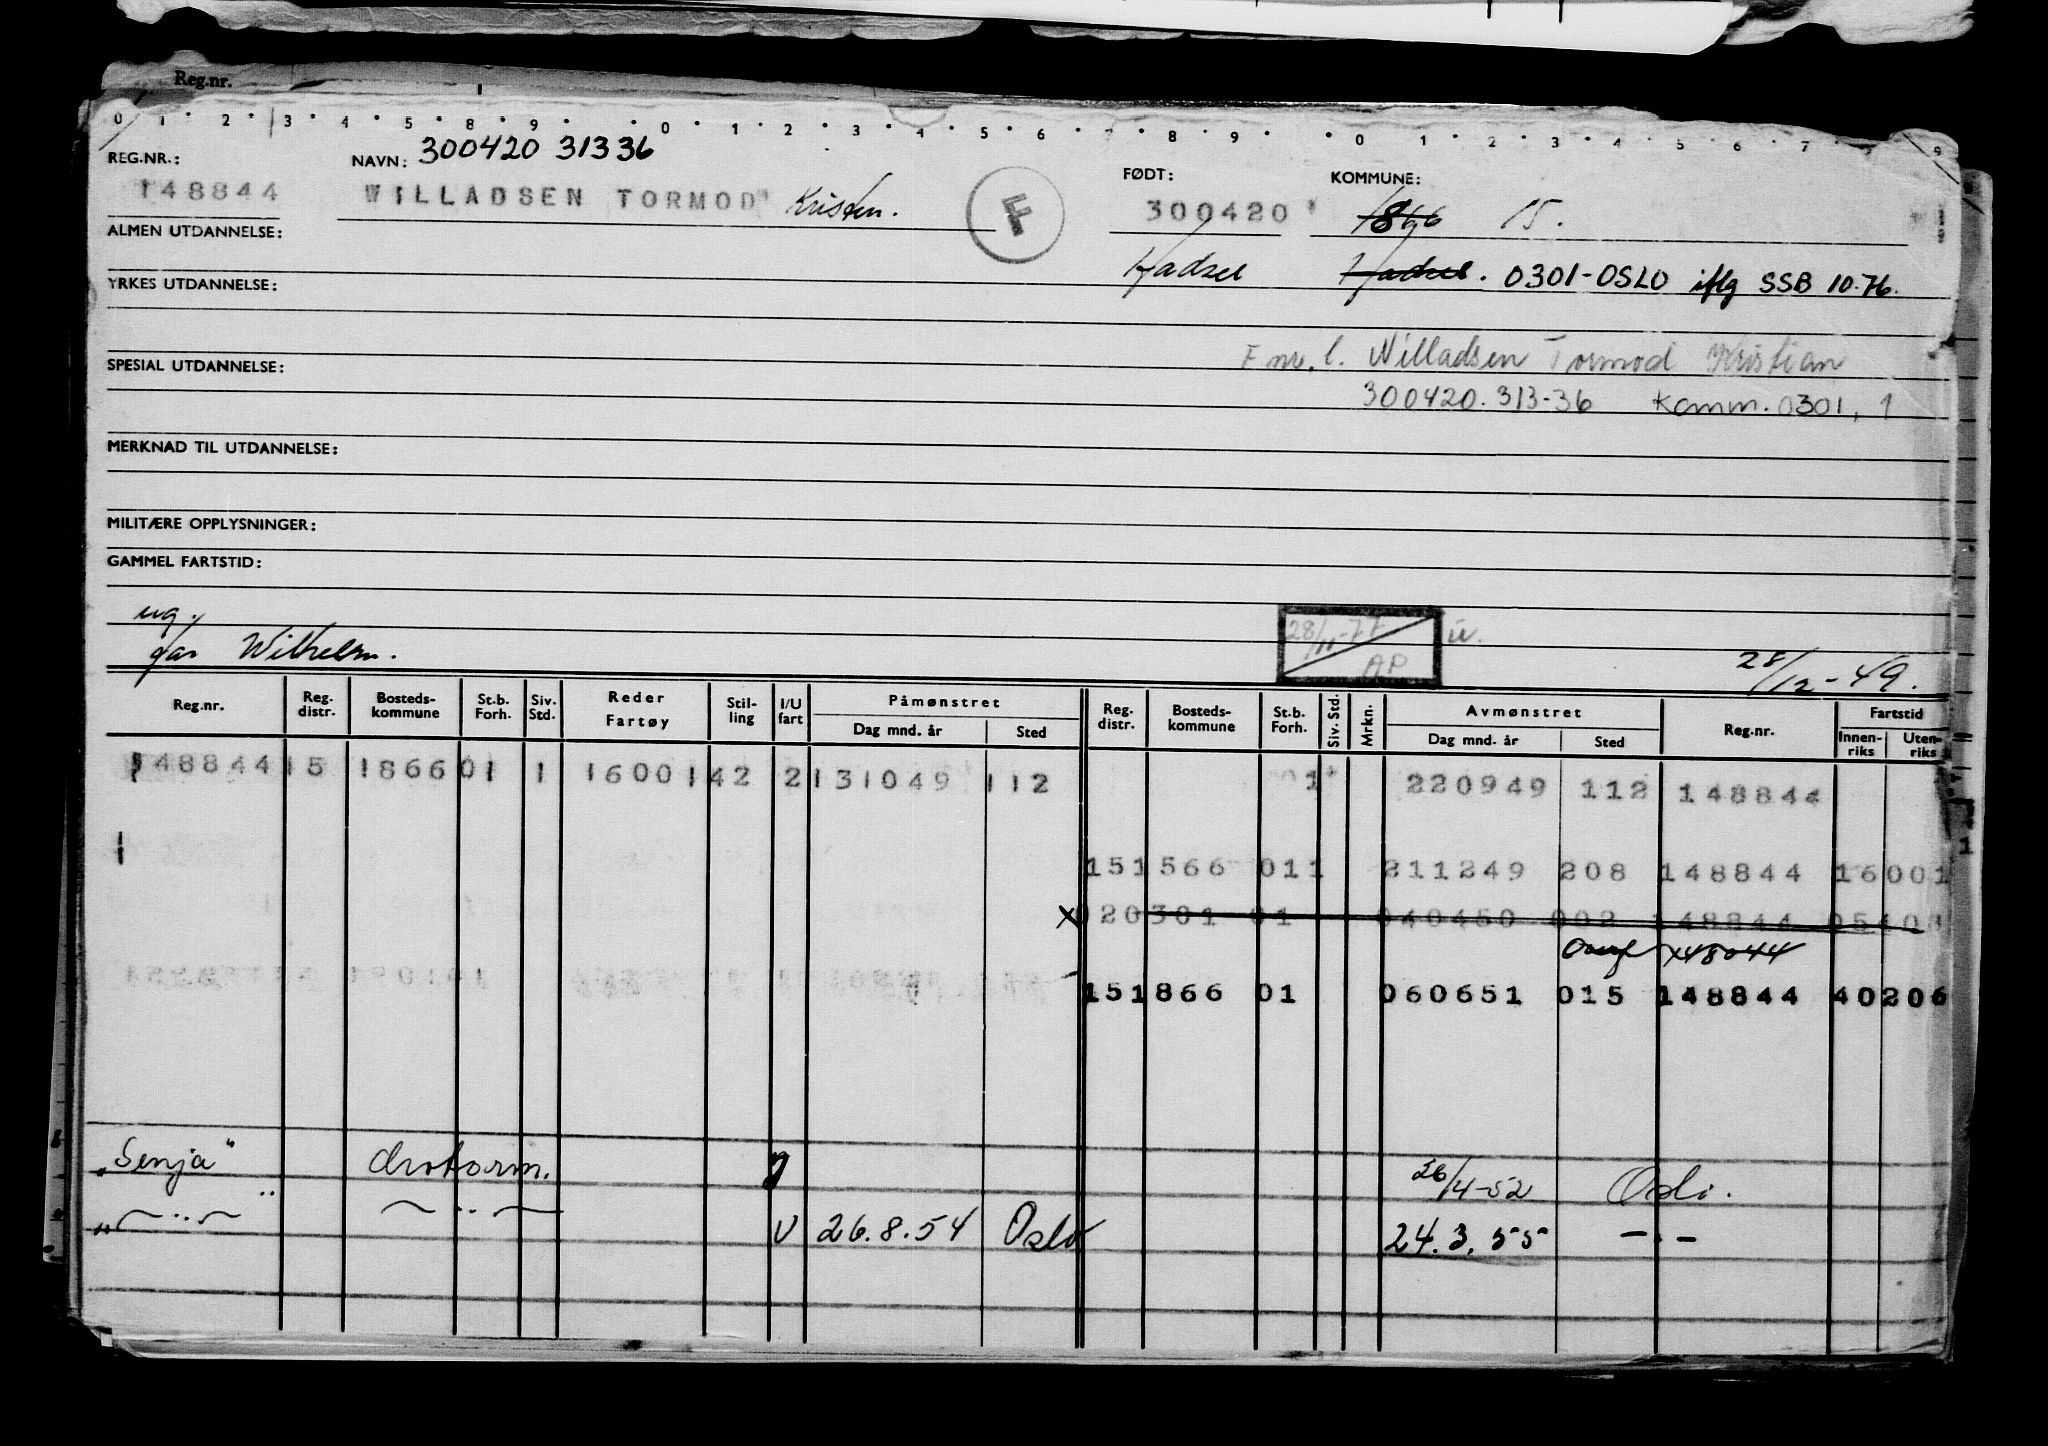 Reg.nr.
0 1 2 3 4 5 8 9 0 1 2 3 4 5 6 7 8 9 0 1 2 3 4 5 6 7 8 9
REG.NR.: NAVN: 300420 31336 FØDT: KOMMUNE:
148844 WILLADSEN TORMOD Kristen. F 300420 1866 15.
ALMEN UTDANNELSE:
Hadsel Hadsel. 0301-OSLO iflg SSB 10.76.
YRKES UTDANNELSE:
F nr. l. Willadsen Tormod Kristian
SPESIAL UTDANNELSE:
300420.313-36 Komm. 0301, 1
MERKNAD TIL UTDANNELSE:
MILITÆRE OPPLYSNINGER:
GAMMEL FARTSTID:
ug.
far Wilhelm.
28/11-77 u.
AP
28/12-49.
Reg.nr. Reg. distr. Bosteds-kommune St.b. Forh. Siv. Std. Reder Fartøy Stil-ling I/U fart Påmønstret Dag mnd. år Sted Reg. distr. Bosteds-kommune St.b. Forh. Siv. Std. Mrkn. Avmønstret Dag mnd. år Sted Reg.nr. Fartstid Innen-riks Uten-riks
148844 15 1866 01 1 16001 42 2 131049 112 01 220949 112 148844
151566 011 211249 208 148844 16001
X 020301 01 040450 002 148844
151866 01 060651 015 148844 40206
„Senja" 26/4-52 Oslo.
U 26.8.54 Oslo 24.3.55 -.-